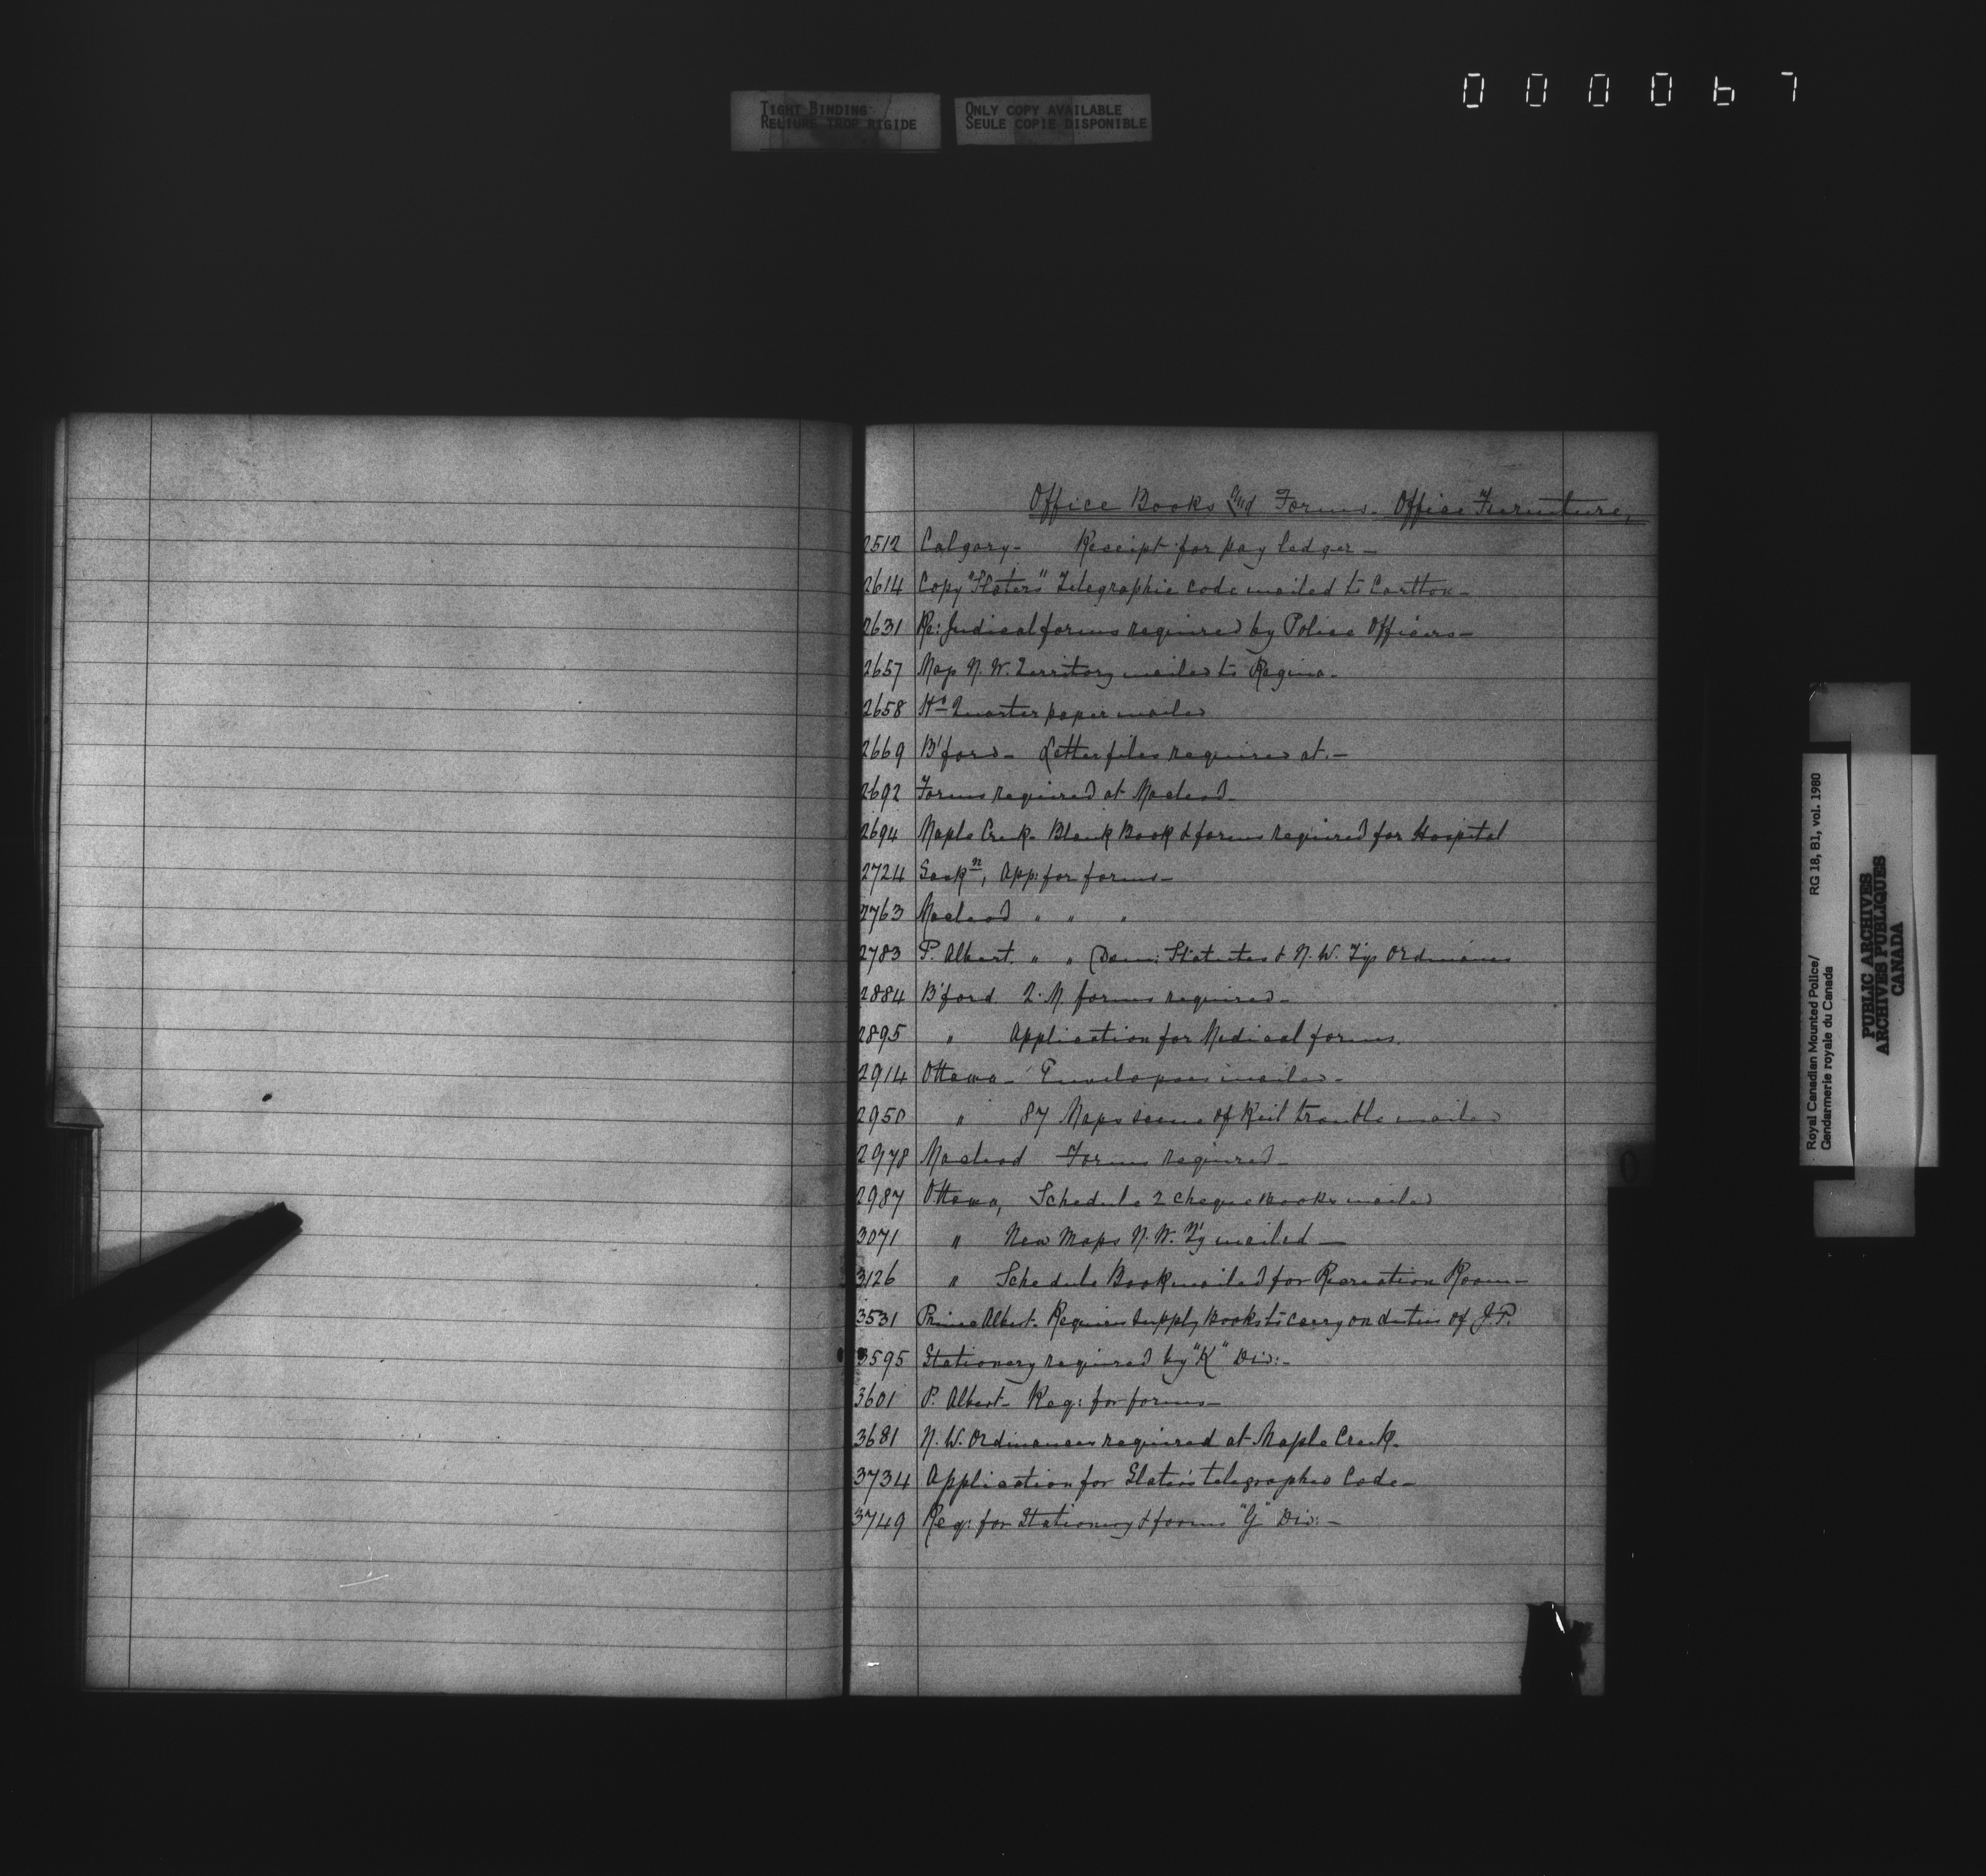 0 0 0 0 6 7
TIGHT BINDING
RELIURE TROP RIGIDE
ONLY COPY AVAILABLE
SEULE COPIE DISPONIBLE
Office Books And Forms. Office Furniture,
2512 Calgary- Receipt for pay ledger-
2614 Copy "Slaters" Telegraphic code mailed to Carlton-
2631 Re: Judical forms required by Police Officers-
2657 Map N. W. Territory mailed to Regina-
2658 Hd Quarter paper mailed
2669 B'ford- Letter files required at.-
2692 Forms required at Macleod-
2694 Maple Creek- Blank Book & forms required for Hospital
2724 Saskn, App: for forms-
2763 Macleod " " "
2783 P. Albert. " " Dom: Statutes & N. W. Typ Ordinances
2884 B'ford Q. M. forms required-
2895 " Application for Medical forms.
2914 Ottawa- Envelopes mailed-
2950 " 87 Maps scene of Reil trouble mailed
2978 Macleod Forms required-
2987 Ottawa, Schedule 2 cheque Books mailed
3071 " New Maps N. W. T'y mailed-
3126 " Schedule Book mailed for Recreation Room-
3531 Prince Albert- Requires supply Books to carry on duties of J. P.
3595 Stationery required by "K" Div:-
3601 P. Albert- Req: for forms-
3681 N. W. Ordinances required at Maple Creek.
3734 Application for Slater's telegraphic Code-
3749 Req: for Stationery & forms "G" Div:-
O
Royal Canadian Mounted Police/ RG 18, B1, vol. 1980
Gendarmerie royale du Canada
PUBLIC ARCHIVES
ARCHIVES PUBLIQUES
CANADA